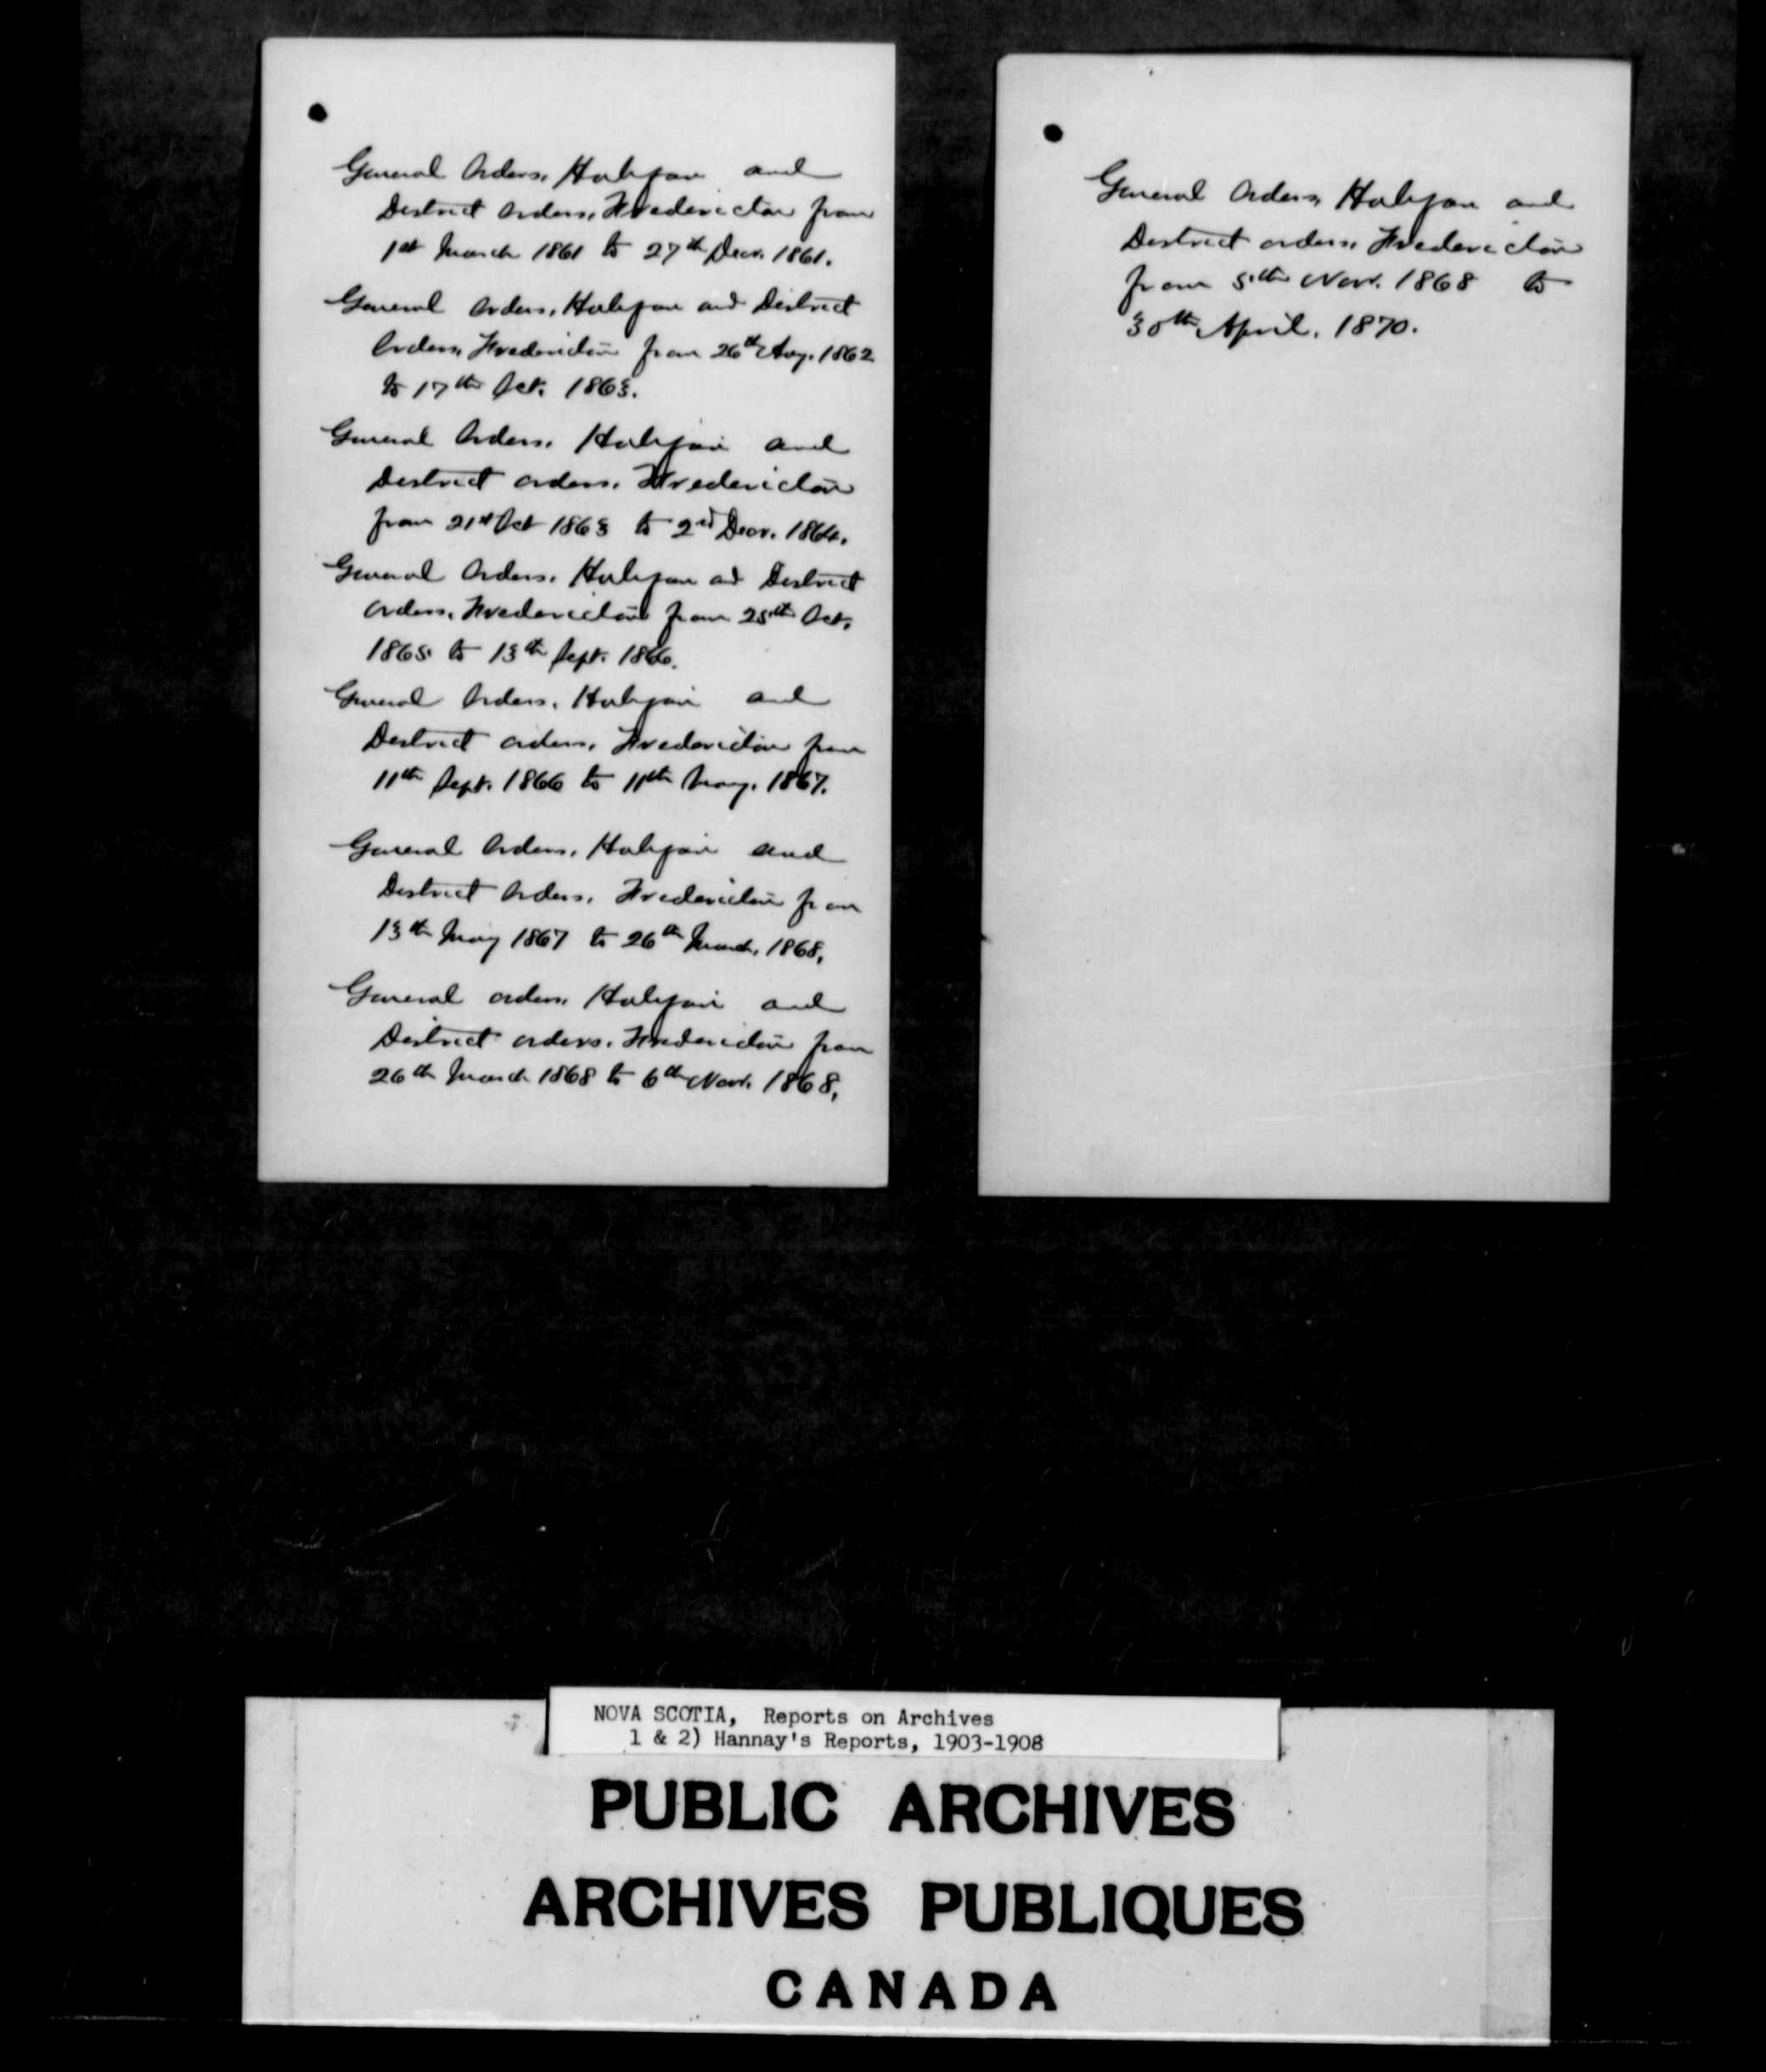 General Orders, Halifax and
District Orders, Fredericton from
1st March 1861 to 27th Decr. 1861.
General Orders, Halifax and District
Orders, Fredericton from 26th Aug. 1862
to 17th Oct. 1863.
General Orders, Halifax and
District orders, Fredericton
from 21st Oct 1863 to 2nd Decr. 1864.
General Orders, Halifax and District
orders, Fredericton from 25th Oct.
1865 to 13th Sept. 1866.
General Orders, Halifax and
District orders, Fredericton from
11th Sept. 1866 to 11th May. 1867.
General Orders, Halifax and
District Orders, Fredericton from
13th May 1867 to 26th March, 1868.
General orders, Halifax and
District orders, Fredericton from
26th March 1868 to 6th Novr. 1868.
General Orders, Halifax and
District orders, Fredericton
from 5th Novr. 1868 to
30th April, 1870.
NOVA SCOTIA, Reports on Archives
1 & 2) Hannay's Reports, 1903-1908
PUBLIC ARCHIVES
ARCHIVES PUBLIQUES
CANADA